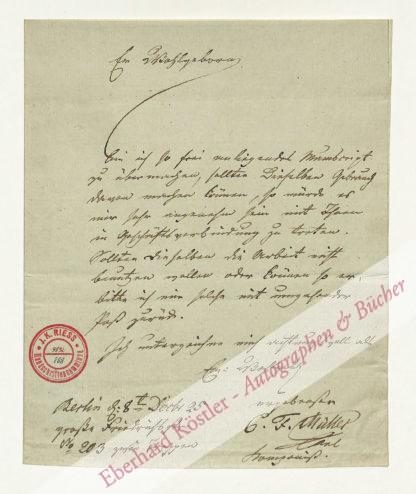 Ew Wohlgeborn
bin ich so frei anliegendes Manuscript
zu übermachen, sollten Dieselben Gebrauch
davon machen können, so würde es
mir sehr angenehm sein mit Ihnen
in Geschäftsverbindung zu treten.
Sollten Dieselben die Arbeit nicht
benutzen wollen oder können so er-
bitte ich mir solche mit umgehender
Post zurück.
Ich unterzeichne mich achtungsvoll als
Ew.
Berlin d: 8t
ergebenster
große Friedrichst
C. F. Müller
No 203
Componist.
J. K. RIESS
Eberhard Köstler - Autographen & Bücher